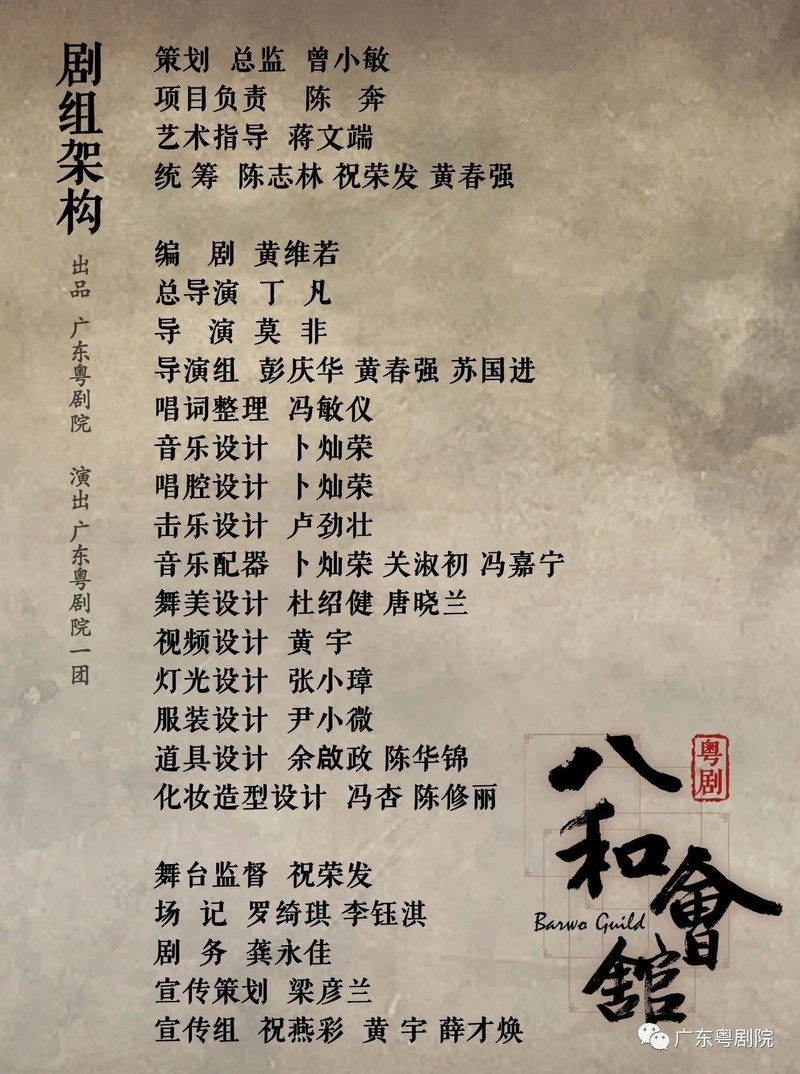 剧组架构
出品 广东粤剧院 演出 广东粤剧院一团
策划 总监 曾小敏
项目负责 陈 奔
艺术指导 蒋文端
统 筹 陈志林 祝荣发 黄春强
编 剧 黄维若
总导演 丁 凡
导 演 莫 非
导演组 彭庆华 黄春强 苏国进
唱词整理 冯敏仪
音乐设计 卜灿荣
唱腔设计 卜灿荣
击乐设计 卢劲壮
音乐配器 卜灿荣 关淑初 冯嘉宁
舞美设计 杜绍健 唐晓兰
视频设计 黄 宇
灯光设计 张小璋
服装设计 尹小微
道具设计 余啟政 陈华锦
化妆造型设计 冯杏 陈修丽
舞台监督 祝荣发
场 记 罗绮琪 李钰淇
剧 务 龚永佳
宣传策划 梁彦兰
宣传组 祝燕彩 黄 宇 薛才焕
粤剧
八和會館
Barwo Guild
广东粤剧院